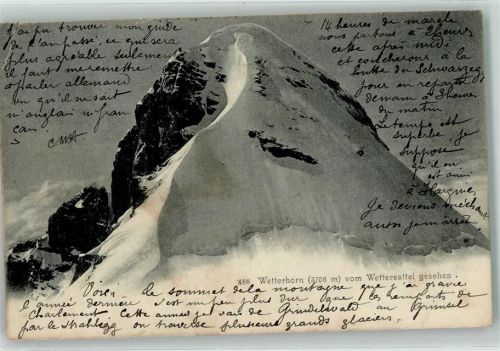 J'ai pu trouver mon guide
de l'an passé, ce qui sera
plus agréable seulement
il faut me remettre
à parler allemand
vu qu'il ne sait
ni anglais ni fran
çais
14 heures de marche
nous partons à 2 heures
cette après midi
et coucherons à la
hutte de Schwarzegg
pour en repartir
demain à 3 heures
du matin
Le temps est
superbe, je
suppose
qu'il en
est ainsi
à
Je deviens méchant
aussi je m'arrête
488. Wetterhorn (3708 m) vom Wettersattel gesehen.
Voici le sommet de la montagne que j'ai gravie
l'année dernière c'est un peu plus dur que les remparts de
Cette année je vais de Grindelwald au Grimsel
par le Strahlegg on traverse plusieurs grands glaciers,